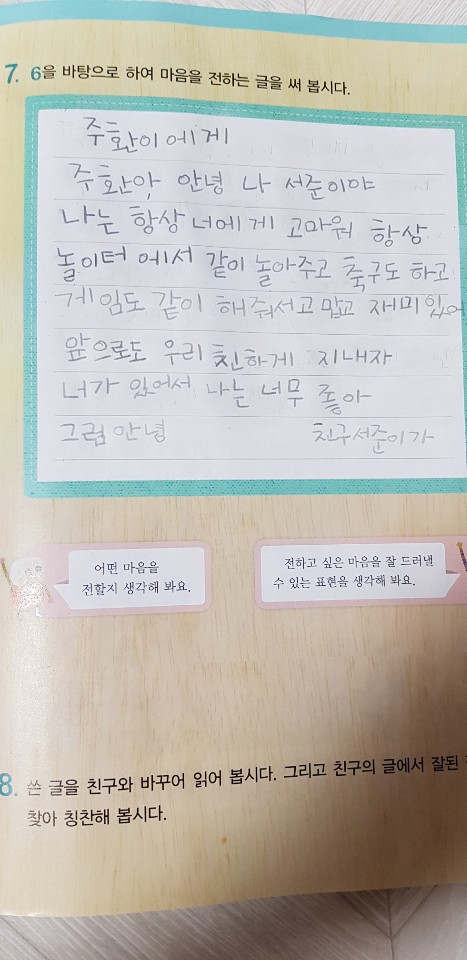 7. 6을 바탕으로 하여 마음을 전하는 글을 써 봅시다.
주환이에게
주환아 안녕 나 서준이야
나는 항상 너에게 고마워 항상
놀이터에서 같이 놀아주고 축구도 하고
게임도 같이 해줘서고맙고 재미있어
앞으로도 우리 친하게 지내자
너가 있어서 나는 너무 좋아
그럼안녕 친구서준이가
어떤 마음을
전할지 생각해 봐요.
전하고 싶은 마음을 잘 드러낼
수 있는 표현을 생각해 봐요.
8. 쓴 글을 친구와 바꾸어 읽어 봅시다. 그리고 친구의 글에서 잘된
찾아 칭찬해 봅시다.